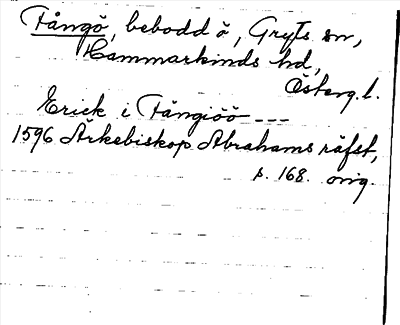 Fångö, bebodd ö, Gryts sn,
Hammarkinds hd,
Österg.l.
Erick i Fångiöö ---
1596 Ärkebiskop Abrahams räfst,
s. 168. orig.